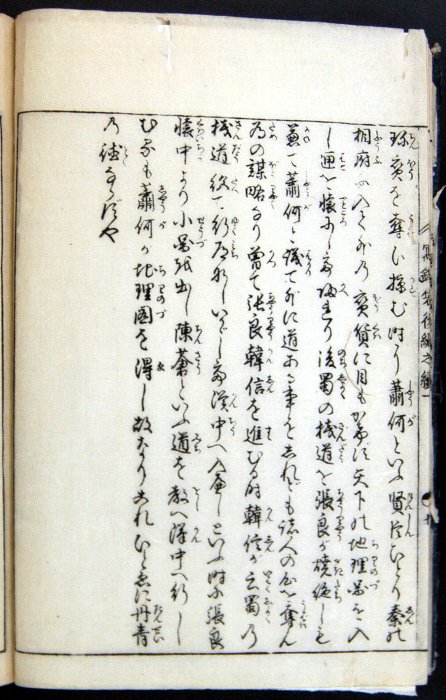 珎寳を奪ひ掠む時に蕭何といふ賢臣ひとり秦の
相府に入て外の寳貨に目もかけず天下の地理図を入
し匣を懐にして帰れり後蜀の桟道を張良が焼絶しも
兼て蕭何と議て外に道ある事をしれども諸人の心を奪ん
為の謀略なり曽て張良韓信を進むる時韓信が云蜀の
桟道絶て行路なしいかゞして漢中へ入べしといふ時に張良
懐中より小図を出し陳蒼といふ道を教へ漢中へ行し
むるも蕭何が地理図を得し故なりこれひとゑに丹青
の徳ならずや